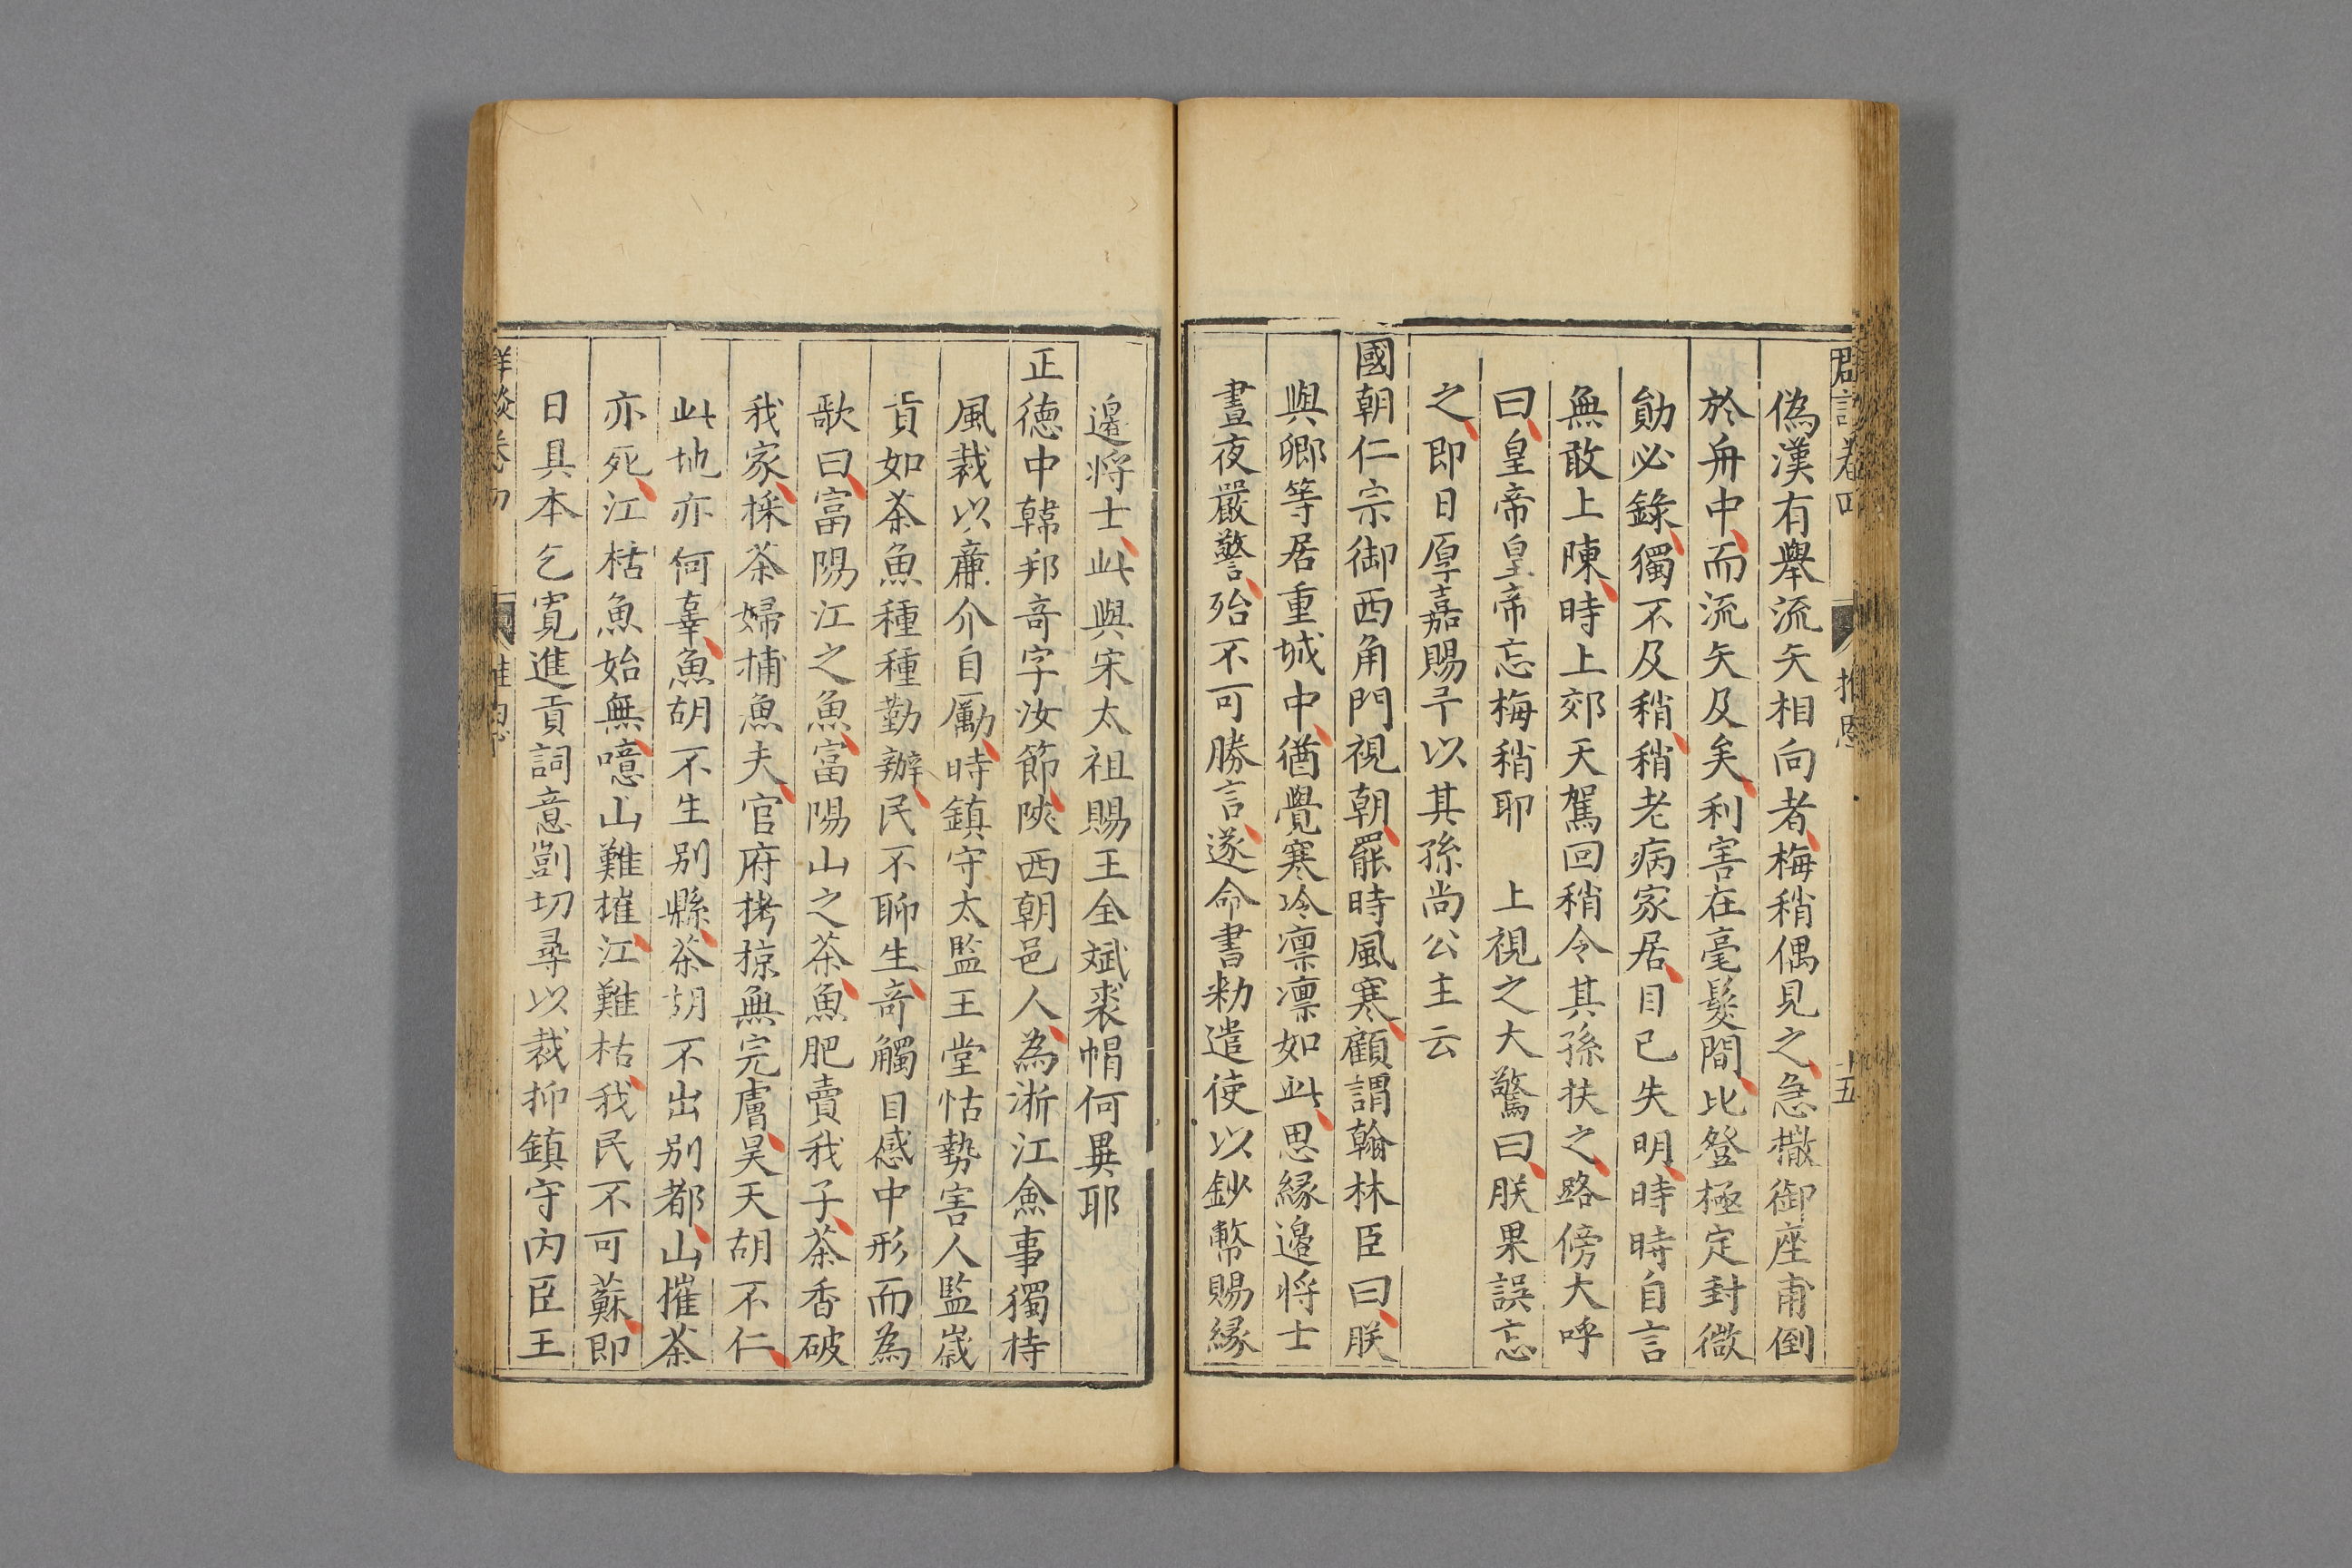 偽漢有舉流矢相向者梅稍偶見之急撒御座甫倒
於舟中而流矢及矣利害在毫髮間比登極定封微
勛必錄獨不及稍稍老病家居目已失明時時自言
無敢上陳時上郊天駕回稍令其孫扶之路傍大呼
曰皇帝皇帝忘梅稍耶　上視之大驚曰朕果誤忘
之即日厚嘉賜予以其孫尚公主云
國朝仁宗御西角門視朝罷時風寒顧謂翰林臣曰朕
與卿等居重城中猶覺寒冷凛凛如此思緣邊將士
晝夜嚴警殆不可勝言遂命書勑遣使以鈔幣賜緣
邊將士此與宋太祖賜王全斌裘帽何異耶
正德中韓邦竒字汝節陝西朝邑人為浙江僉事獨持
風裁以亷介自勵時鎮守太監王堂怙勢害人監歲
貢如茶魚種種勤辦民不聊生竒觸目感中形而為
歌曰富陽江之魚富陽山之茶魚肥賣我子茶香破
我家採茶婦捕魚夫官府拷掠無完膚昊天胡不仁
此地亦何辜魚胡不生别縣茶胡不出别都山摧茶
亦死江枯魚始無噫山難摧江難枯我民不可蘇即
日具本乞寬進貢詞意剴切尋以裁抑鎮守内臣王